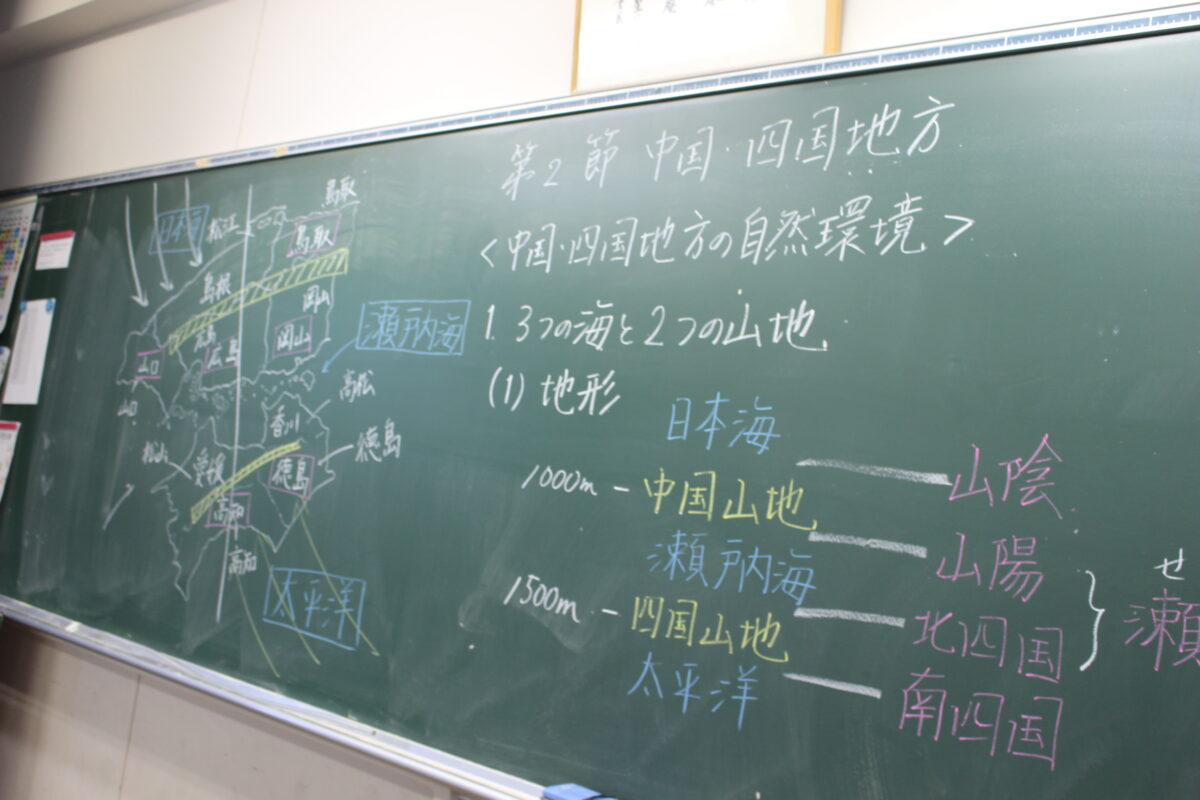 第2節 中国・四国地方
<中国・四国地方の自然環境>
1. 3つの海と2つの山地
(1) 地形
日本海
1000m - 中国山地
山陰
瀬戸内海
山陽
1500m - 四国山地
北四国
太平洋
南四国
せ
瀬
日本海
松江
鳥取
鳥取
島根
岡山
広島
広島
岡山
瀬戸内海
山口
山口
高松
香川
松山
愛媛
徳島
徳島
高知
高知
太平洋